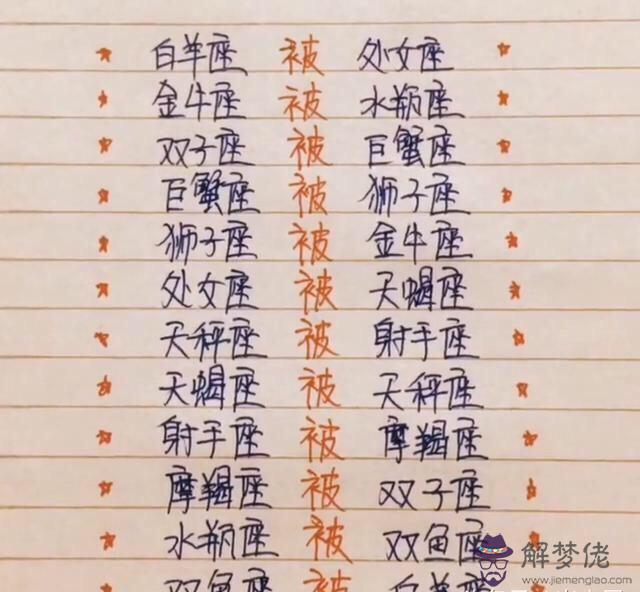 白羊座 被 处女座
金牛座 被 水瓶座
双子座 被 巨蟹座
巨蟹座 被 狮子座
狮子座 被 金牛座
处女座 被 天蝎座
天秤座 被 射手座
天蝎座 被 天秤座
射手座 被 摩羯座
摩羯座 被 双子座
水瓶座 被 双鱼座
双鱼座 被 白羊座
解梦佬
www.jiemenglao.com